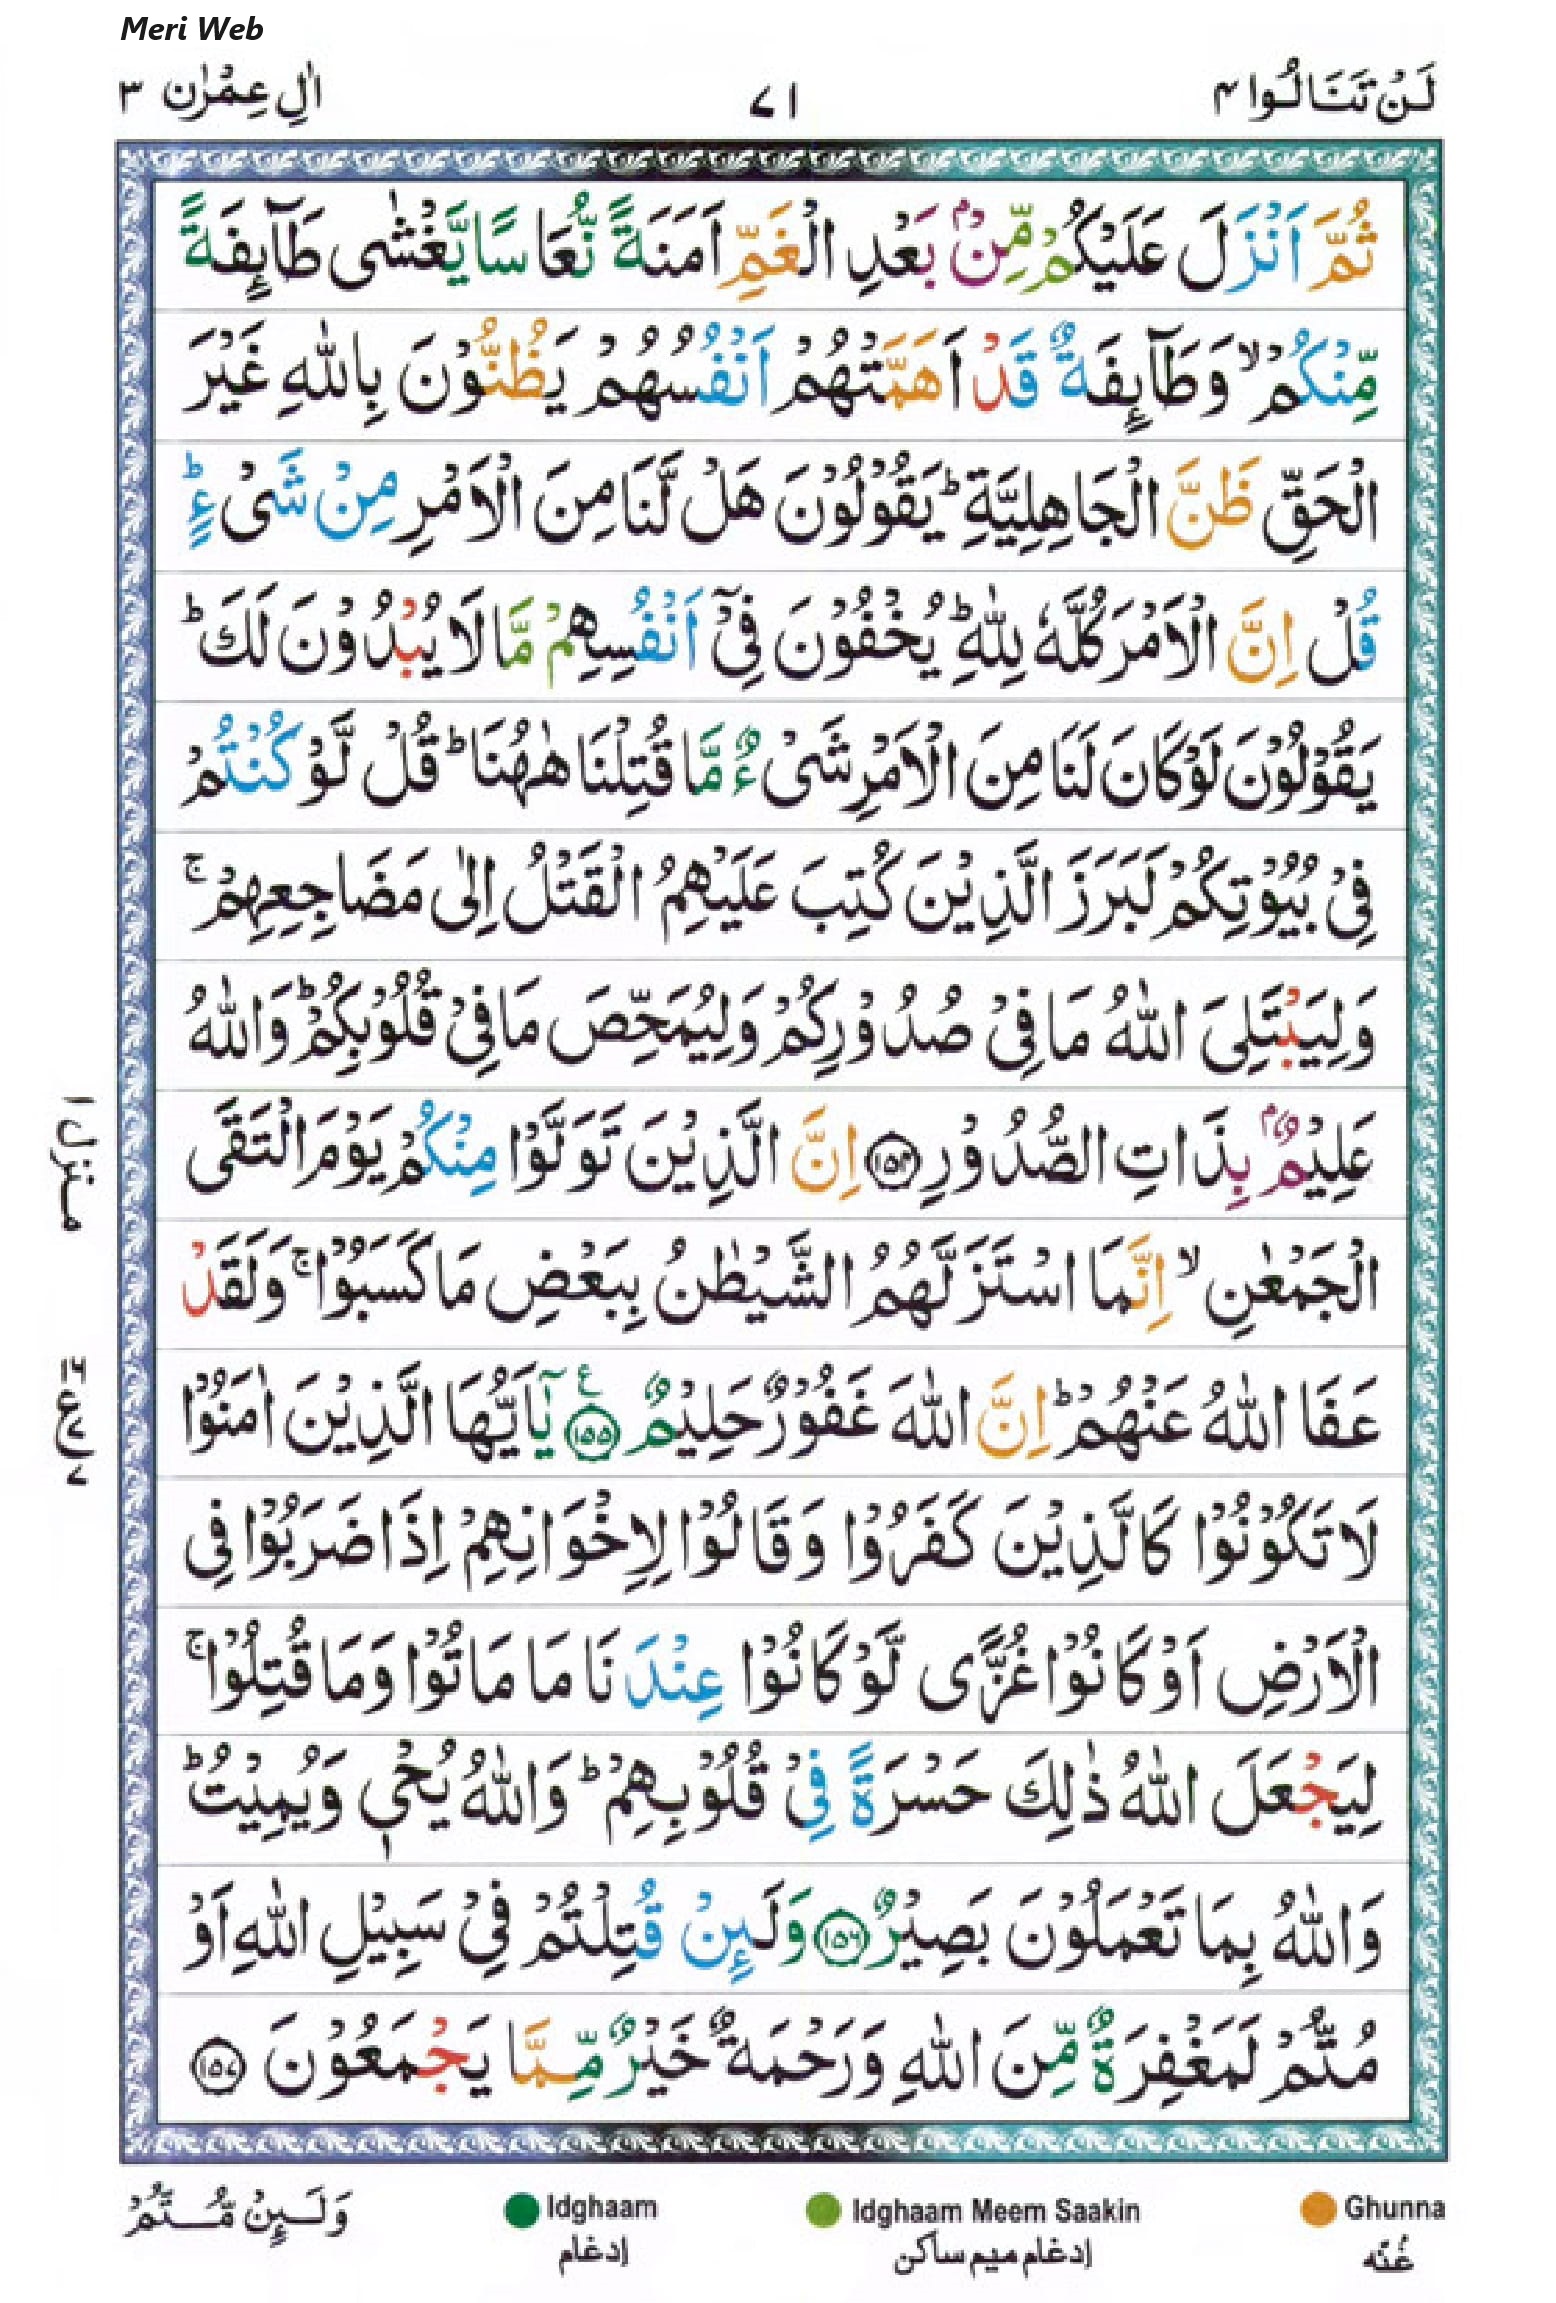 Meri Web
لَنْ تَنَالُوا ۴
۷۱
اٰلِ عِمْرٰن ۳
ثُمَّ اَنْزَلَ عَلَيْكُمْ مِّنْۢ بَعْدِ الْغَمِّ اَمَنَةً نُّعَاسًا يَّغْشٰى طَآىِٕفَةً
مِّنْكُمْ ۙ وَطَآىِٕفَةٌ قَدْ اَهَمَّتْهُمْ اَنْفُسُهُمْ يَظُنُّوْنَ بِاللّٰهِ غَيْرَ
الْحَقِّ ظَنَّ الْجَاهِلِيَّةِ ؕ يَقُوْلُوْنَ هَلْ لَّنَا مِنَ الْاَمْرِ مِنْ شَىْءٍ ؕ
قُلْ اِنَّ الْاَمْرَ كُلَّهٗ لِلّٰهِ ؕ يُخْفُوْنَ فِىْۤ اَنْفُسِهِمْ مَّا لَا يُبْدُوْنَ لَكَ ؕ
يَقُوْلُوْنَ لَوْ كَانَ لَنَا مِنَ الْاَمْرِ شَىْءٌ مَّا قُتِلْنَا هٰهُنَا ؕ قُلْ لَّوْ كُنْتُمْ
فِىْ بُيُوْتِكُمْ لَبَرَزَ الَّذِيْنَ كُتِبَ عَلَيْهِمُ الْقَتْلُ اِلٰى مَضَاجِعِهِمْ ۚ
وَلِيَبْتَلِىَ اللّٰهُ مَا فِىْ صُدُوْرِكُمْ وَلِيُمَحِّصَ مَا فِىْ قُلُوْبِكُمْ ؕ وَاللّٰهُ
عَلِيْمٌۢ بِذَاتِ الصُّدُوْرِ ۝۱۵۴ اِنَّ الَّذِيْنَ تَوَلَّوْا مِنْكُمْ يَوْمَ الْتَقَى
الْجَمْعٰنِ ۙ اِنَّمَا اسْتَزَلَّهُمُ الشَّيْطٰنُ بِبَعْضِ مَا كَسَبُوْا ۚ وَلَقَدْ
عَفَا اللّٰهُ عَنْهُمْ ؕ اِنَّ اللّٰهَ غَفُوْرٌ حَلِيْمٌ ۝۱۵۵ ع يٰۤاَيُّهَا الَّذِيْنَ اٰمَنُوْا
لَا تَكُوْنُوْا كَالَّذِيْنَ كَفَرُوْا وَقَالُوْا لِاِخْوَانِهِمْ اِذَا ضَرَبُوْا فِى
الْاَرْضِ اَوْ كَانُوْا غُزًّى لَّوْ كَانُوْا عِنْدَنَا مَا مَاتُوْا وَمَا قُتِلُوْا ۚ
لِيَجْعَلَ اللّٰهُ ذٰلِكَ حَسْرَةً فِىْ قُلُوْبِهِمْ ؕ وَاللّٰهُ يُحْىٖ وَيُمِيْتُ ؕ
وَاللّٰهُ بِمَا تَعْمَلُوْنَ بَصِيْرٌ ۝۱۵۶ وَلَىِٕنْ قُتِلْتُمْ فِىْ سَبِيْلِ اللّٰهِ اَوْ
مُتُّمْ لَمَغْفِرَةٌ مِّنَ اللّٰهِ وَرَحْمَةٌ خَيْرٌ مِّمَّا يَجْمَعُوْنَ ۝۱۵۷
منزل ۱
Ghunna
غُنّه
Idghaam Meem Saakin
إدغام ميم ساكن
Idghaam
إدغام
وَلَىِٕنْ مُّتُّمْ